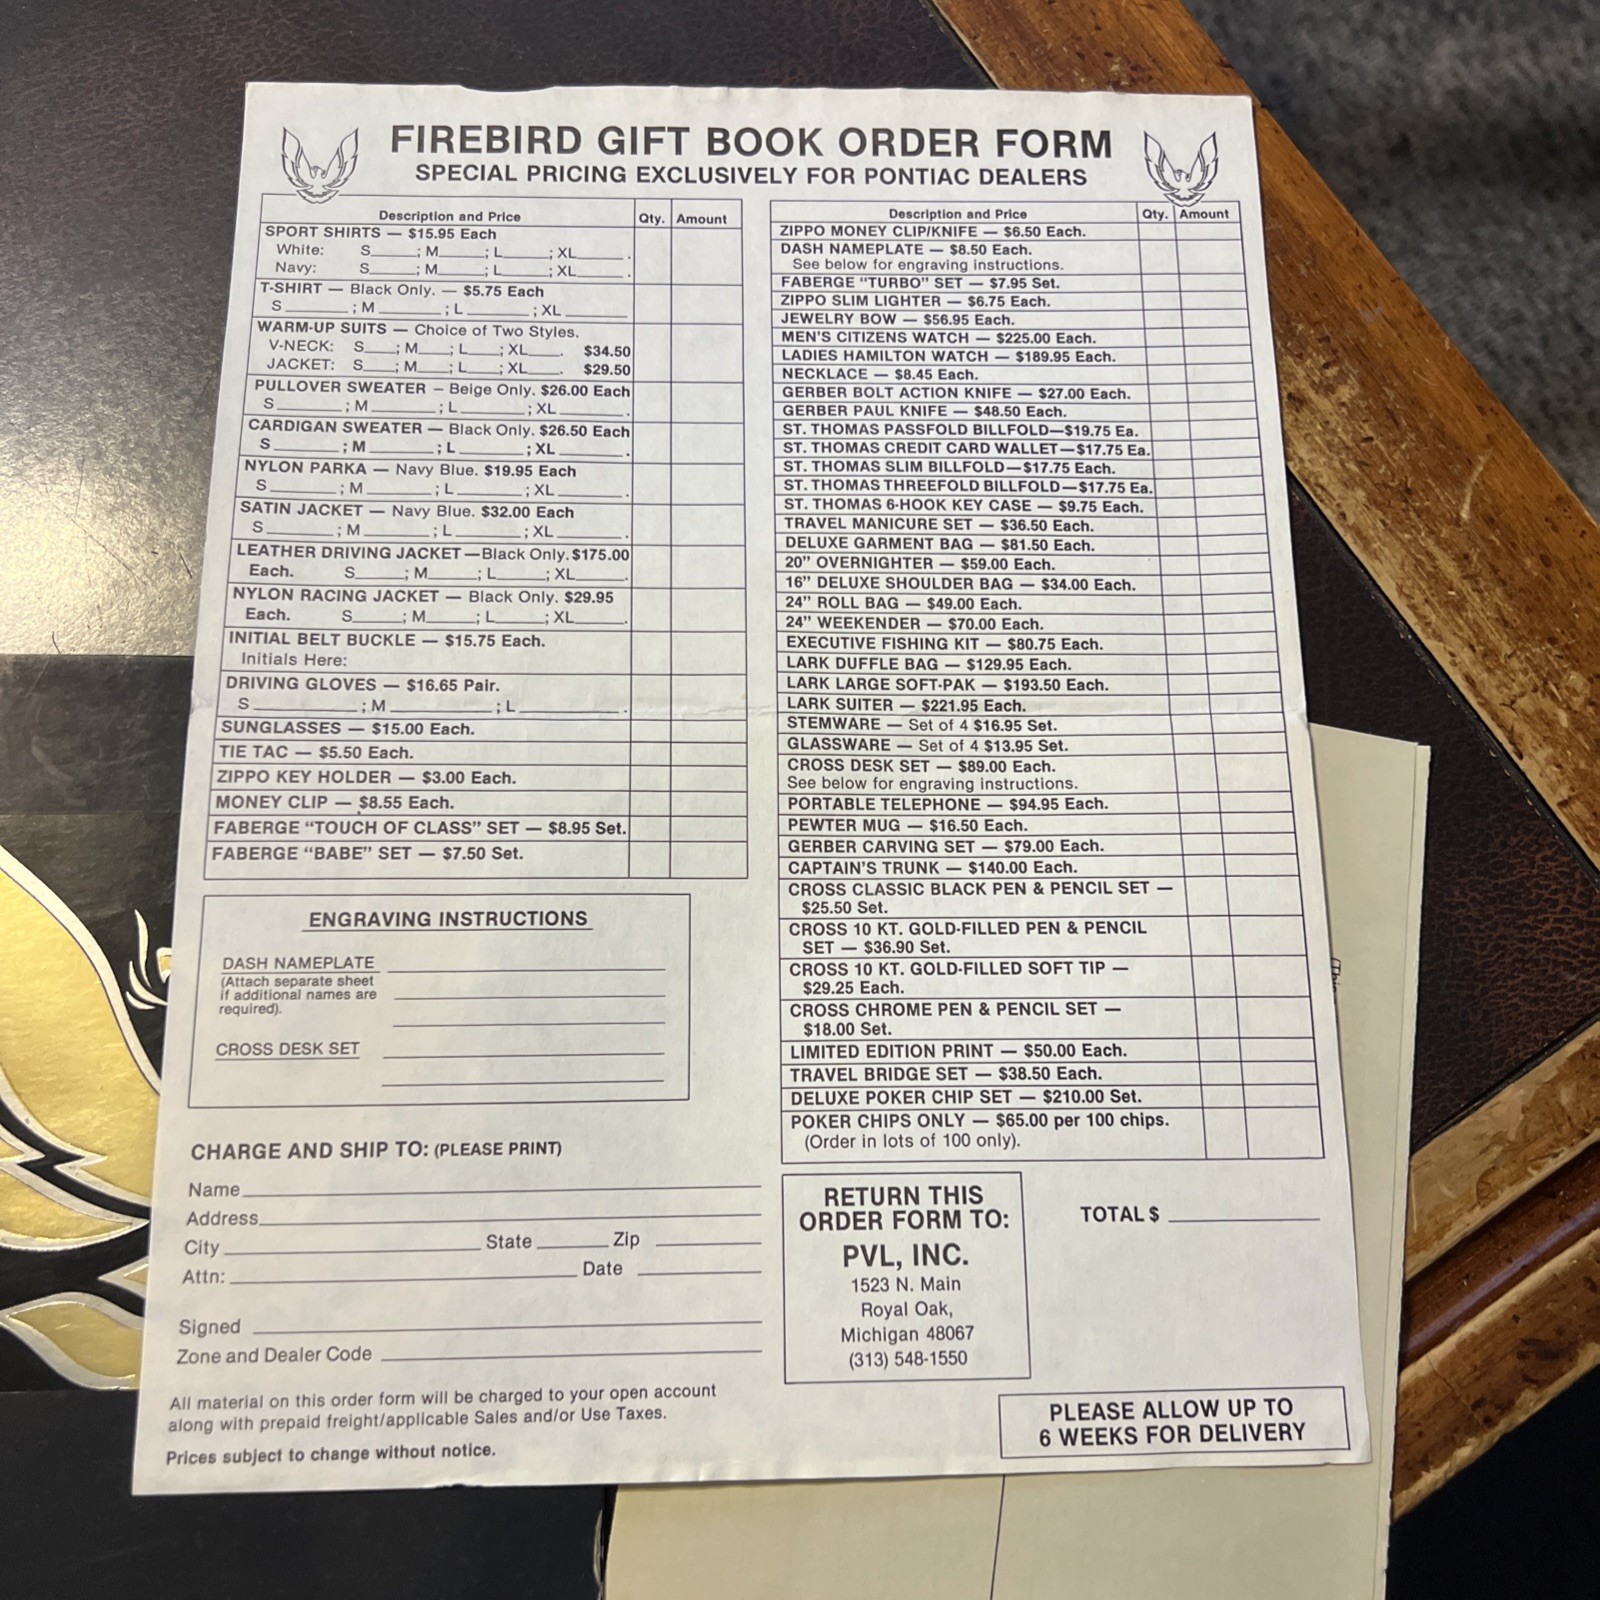 FIREBIRD GIFT BOOK ORDER FORM
SPECIAL PRICING EXCLUSIVELY FOR PONTIAC DEALERS
Description and Price Qty. Amount
SPORT SHIRTS — $15.95 Each
White: S____; M____; L____; XL____.
Navy: S____; M____; L____; XL____.
T-SHIRT — Black Only. — $5.75 Each
S____; M____; L____; XL____
WARM-UP SUITS — Choice of Two Styles.
V-NECK: S____; M____; L____; XL____. $34.50
JACKET: S____; M____; L____; XL____. $29.50
PULLOVER SWEATER – Beige Only. $26.00 Each
S____; M____; L____; XL____.
CARDIGAN SWEATER — Black Only. $26.50 Each
S____; M____; L____; XL____.
NYLON PARKA — Navy Blue. $19.95 Each
S____; M____; L____; XL____.
SATIN JACKET — Navy Blue. $32.00 Each
S____; M____; L____; XL____.
LEATHER DRIVING JACKET—Black Only. $175.00
Each. S____; M____; L____; XL____.
NYLON RACING JACKET — Black Only. $29.95
Each. S____; M____; L____; XL____.
INITIAL BELT BUCKLE — $15.75 Each.
Initials Here:
DRIVING GLOVES — $16.65 Pair.
S____; M____; L____.
SUNGLASSES — $15.00 Each.
TIE TAC — $5.50 Each.
ZIPPO KEY HOLDER — $3.00 Each.
MONEY CLIP — $8.55 Each.
FABERGE “TOUCH OF CLASS” SET — $8.95 Set.
FABERGE “BABE” SET — $7.50 Set.
ENGRAVING INSTRUCTIONS
DASH NAMEPLATE
(Attach separate sheet
if additional names are
required).
CROSS DESK SET
CHARGE AND SHIP TO: (PLEASE PRINT)
Name
Address
City State Zip
Attn: Date
Signed
Zone and Dealer Code
All material on this order form will be charged to your open account
along with prepaid freight/applicable Sales and/or Use Taxes.
Prices subject to change without notice.
Description and Price Qty. Amount
ZIPPO MONEY CLIP/KNIFE — $6.50 Each.
DASH NAMEPLATE — $8.50 Each.
See below for engraving instructions.
FABERGE “TURBO” SET — $7.95 Set.
ZIPPO SLIM LIGHTER — $6.75 Each.
JEWELRY BOW — $56.95 Each.
MEN'S CITIZENS WATCH — $225.00 Each.
LADIES HAMILTON WATCH — $189.95 Each.
NECKLACE — $8.45 Each.
GERBER BOLT ACTION KNIFE — $27.00 Each.
GERBER PAUL KNIFE — $48.50 Each.
ST. THOMAS PASSFOLD BILLFOLD—$19.75 Ea.
ST. THOMAS CREDIT CARD WALLET—$17.75 Ea.
ST. THOMAS SLIM BILLFOLD—$17.75 Each.
ST. THOMAS THREEFOLD BILLFOLD—$17.75 Ea.
ST. THOMAS 6-HOOK KEY CASE — $9.75 Each.
TRAVEL MANICURE SET — $36.50 Each.
DELUXE GARMENT BAG — $81.50 Each.
20” OVERNIGHTER — $59.00 Each.
16” DELUXE SHOULDER BAG — $34.00 Each.
24” ROLL BAG — $49.00 Each.
24” WEEKENDER — $70.00 Each.
EXECUTIVE FISHING KIT — $80.75 Each.
LARK DUFFLE BAG — $129.95 Each.
LARK LARGE SOFT-PAK — $193.50 Each.
LARK SUITER — $221.95 Each.
STEMWARE — Set of 4 $16.95 Set.
GLASSWARE — Set of 4 $13.95 Set.
CROSS DESK SET — $89.00 Each.
See below for engraving instructions.
PORTABLE TELEPHONE — $94.95 Each.
PEWTER MUG — $16.50 Each.
GERBER CARVING SET — $79.00 Each.
CAPTAIN'S TRUNK — $140.00 Each.
CROSS CLASSIC BLACK PEN & PENCIL SET —
$25.50 Set.
CROSS 10 KT. GOLD-FILLED PEN & PENCIL
SET — $36.90 Set.
CROSS 10 KT. GOLD-FILLED SOFT TIP —
$29.25 Each.
CROSS CHROME PEN & PENCIL SET —
$18.00 Set.
LIMITED EDITION PRINT — $50.00 Each.
TRAVEL BRIDGE SET — $38.50 Each.
DELUXE POKER CHIP SET — $210.00 Set.
POKER CHIPS ONLY — $65.00 per 100 chips.
(Order in lots of 100 only).
RETURN THIS
ORDER FORM TO:
PVL, INC.
1523 N. Main
Royal Oak,
Michigan 48067
(313) 548-1550
TOTAL $
PLEASE ALLOW UP TO
6 WEEKS FOR DELIVERY